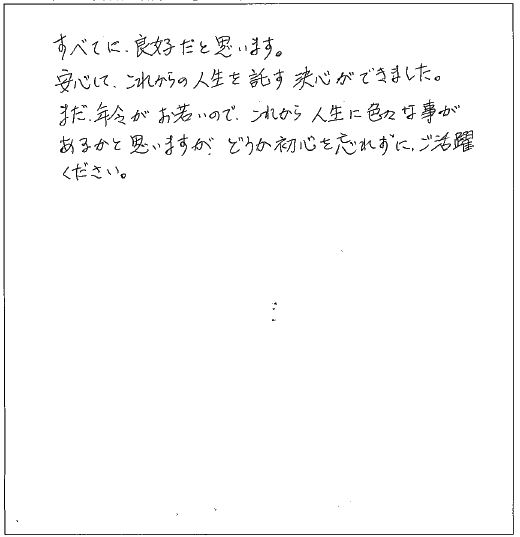 すべてに、良好だと思います。
安心して、これからの人生を託す決心ができました。
まだ、年令がお若いので、これから人生に色々な事が
あるかと思いますが、どうか初心を忘れずに、ご活躍
ください。